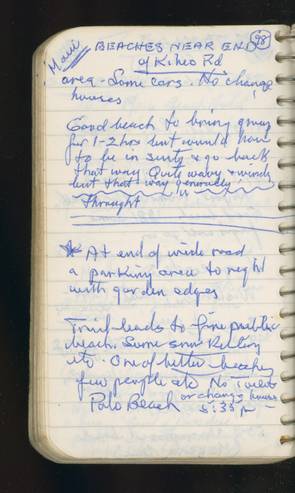 98
Maui
BEACHES NEAR END
of Kihei Rd
area - Some cars. No change
houses
Good beach to bring group
for 1-2 hrs but would have
to be in suits & go back
that way. Quite wavy & windy
but that way generally is
thought
* At end of wide road
a parking area to right
with garden edges
Trail leads to fine public
beach. Some snorkeling
etc. One of better beaches
few people etc No toilets
or change houses
Polo Beach 5:35 pm -